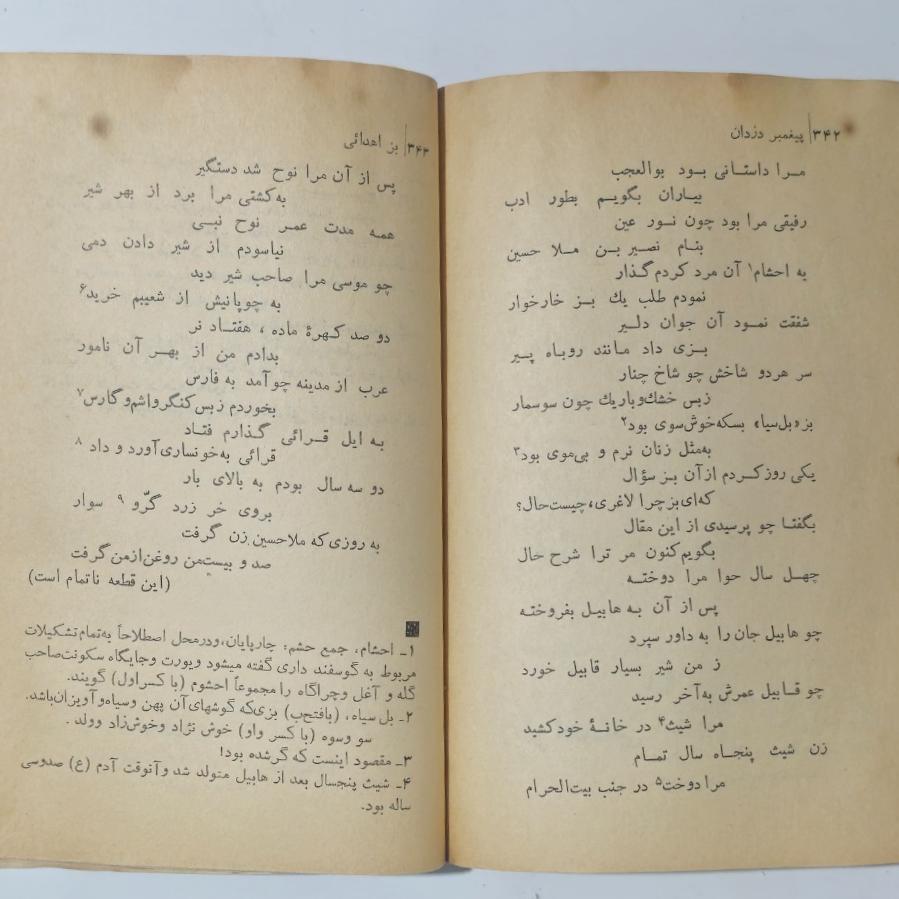 ۳۴۲ پیغمبر دزدان
مرا داستانی بود بوالعجب
بیاران بگویم بطور ادب
رفیقی مرا بود چون نور عین
بنام نصیر بن ملا حسین
به احشام۱ آن مرد کردم گذار
نمودم طلب یك بز خارخوار
شفقت نمود آن جوان دلیر
بزی داد مانند روباه پیر
سر هردو شاخش چو شاخ چنار
زبس خشك و باریك چون سوسمار
بز «بل سیا» بسکه خوش سوی بود۲
به مثل زنان نرم و بی موی بود۳
یکی روز کردم از آن بز سؤال
که ای بز چرا لاغری، چیست حال؟
بگفتا چو پرسیدی از این مقال
بگویم کنون مر ترا شرح حال
چهل سال حوا مرا دوخته
پس از آن به هابیل بفروخته
چو هابیل جان را به داور سپرد
ز من شیر بسیار قابیل خورد
چو قابیل عمرش به آخر رسید
مرا شیث۴ در خانهٔ خود کشید
زن شیث پنجاه سال تمام
مرا دوخت۵ در جنب بیت الحرام
۳۴۳ بز اهدائی
پس از آن مرا نوح شد دستگیر
به کشتی مرا برد از بهر شیر
همه مدت عمر نوح نبی
نیاسودم از شیر دادن دمی
چو موسی مرا صاحب شیر دید
به چوپانیش از شعیبم خرید۶
دو صد کهرهٔ ماده، هفتاد نر
بدادم من از بهر آن نامور
عرب از مدینه چو آمد به فارس
بخوردم زبس کنگر و اشم و گارس۷
به ایل قرائی گذارم فتاد
قرائی به خونساری آورد و داد ۸
دو سه سال بودم به بالای بار
بروی خر زرد گرّو ۹ سوار
به روزی که ملاحسین زن گرفت
صد و بیست من روغن از من گرفت
(این قطعه ناتمام است)
۱ـ احشام، جمع حشم: چارپایان، ودرمحل اصطلاحاً به تمام تشکیلات
مربوط به گوسفند داری گفته میشود ویورت وجایگاه سکونت صاحب
گله و آغل وچراگاه را مجموعاً احشوم (با کسر اول) گویند.
۲ـ بل سیاه، (بافتح ب) بزی که گوشهای آن پهن وسیاه و آویزان باشد.
سو وسوه (با کسر واو) خوش نژاد وخوش زاد وولد.
۳ـ مقصود اینست که گر شده بود!
۴ـ شیث پنجسال بعد از هابیل متولد شد وآنوقت آدم (ع) صدوسی
ساله بود.